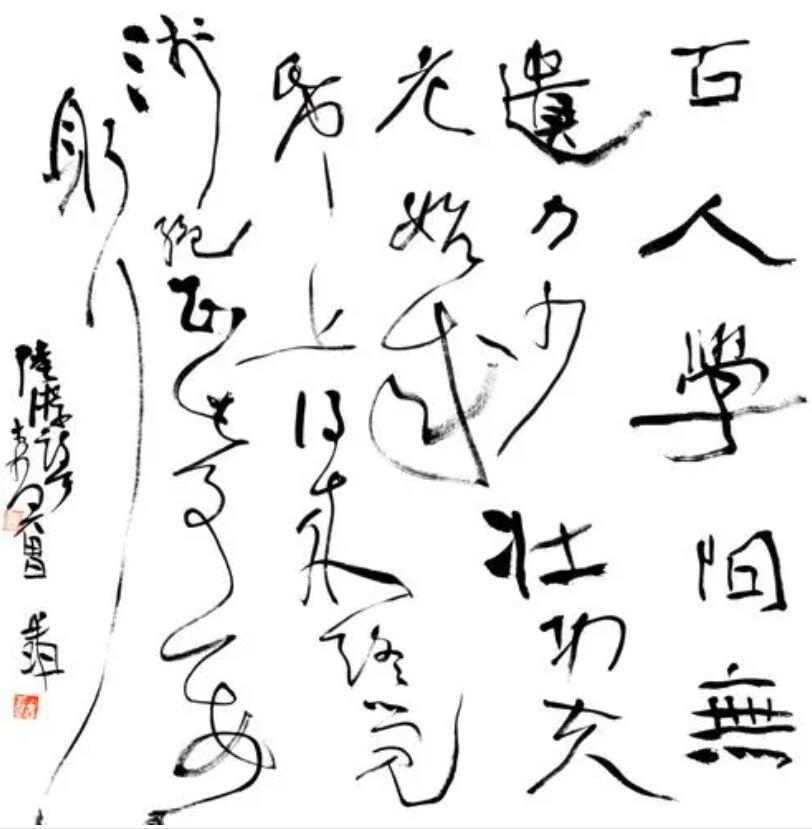 古人學問無
遺力少壯功夫
老始成
紙上得來終覺
淺絕知此事要
躬行
陸游詩